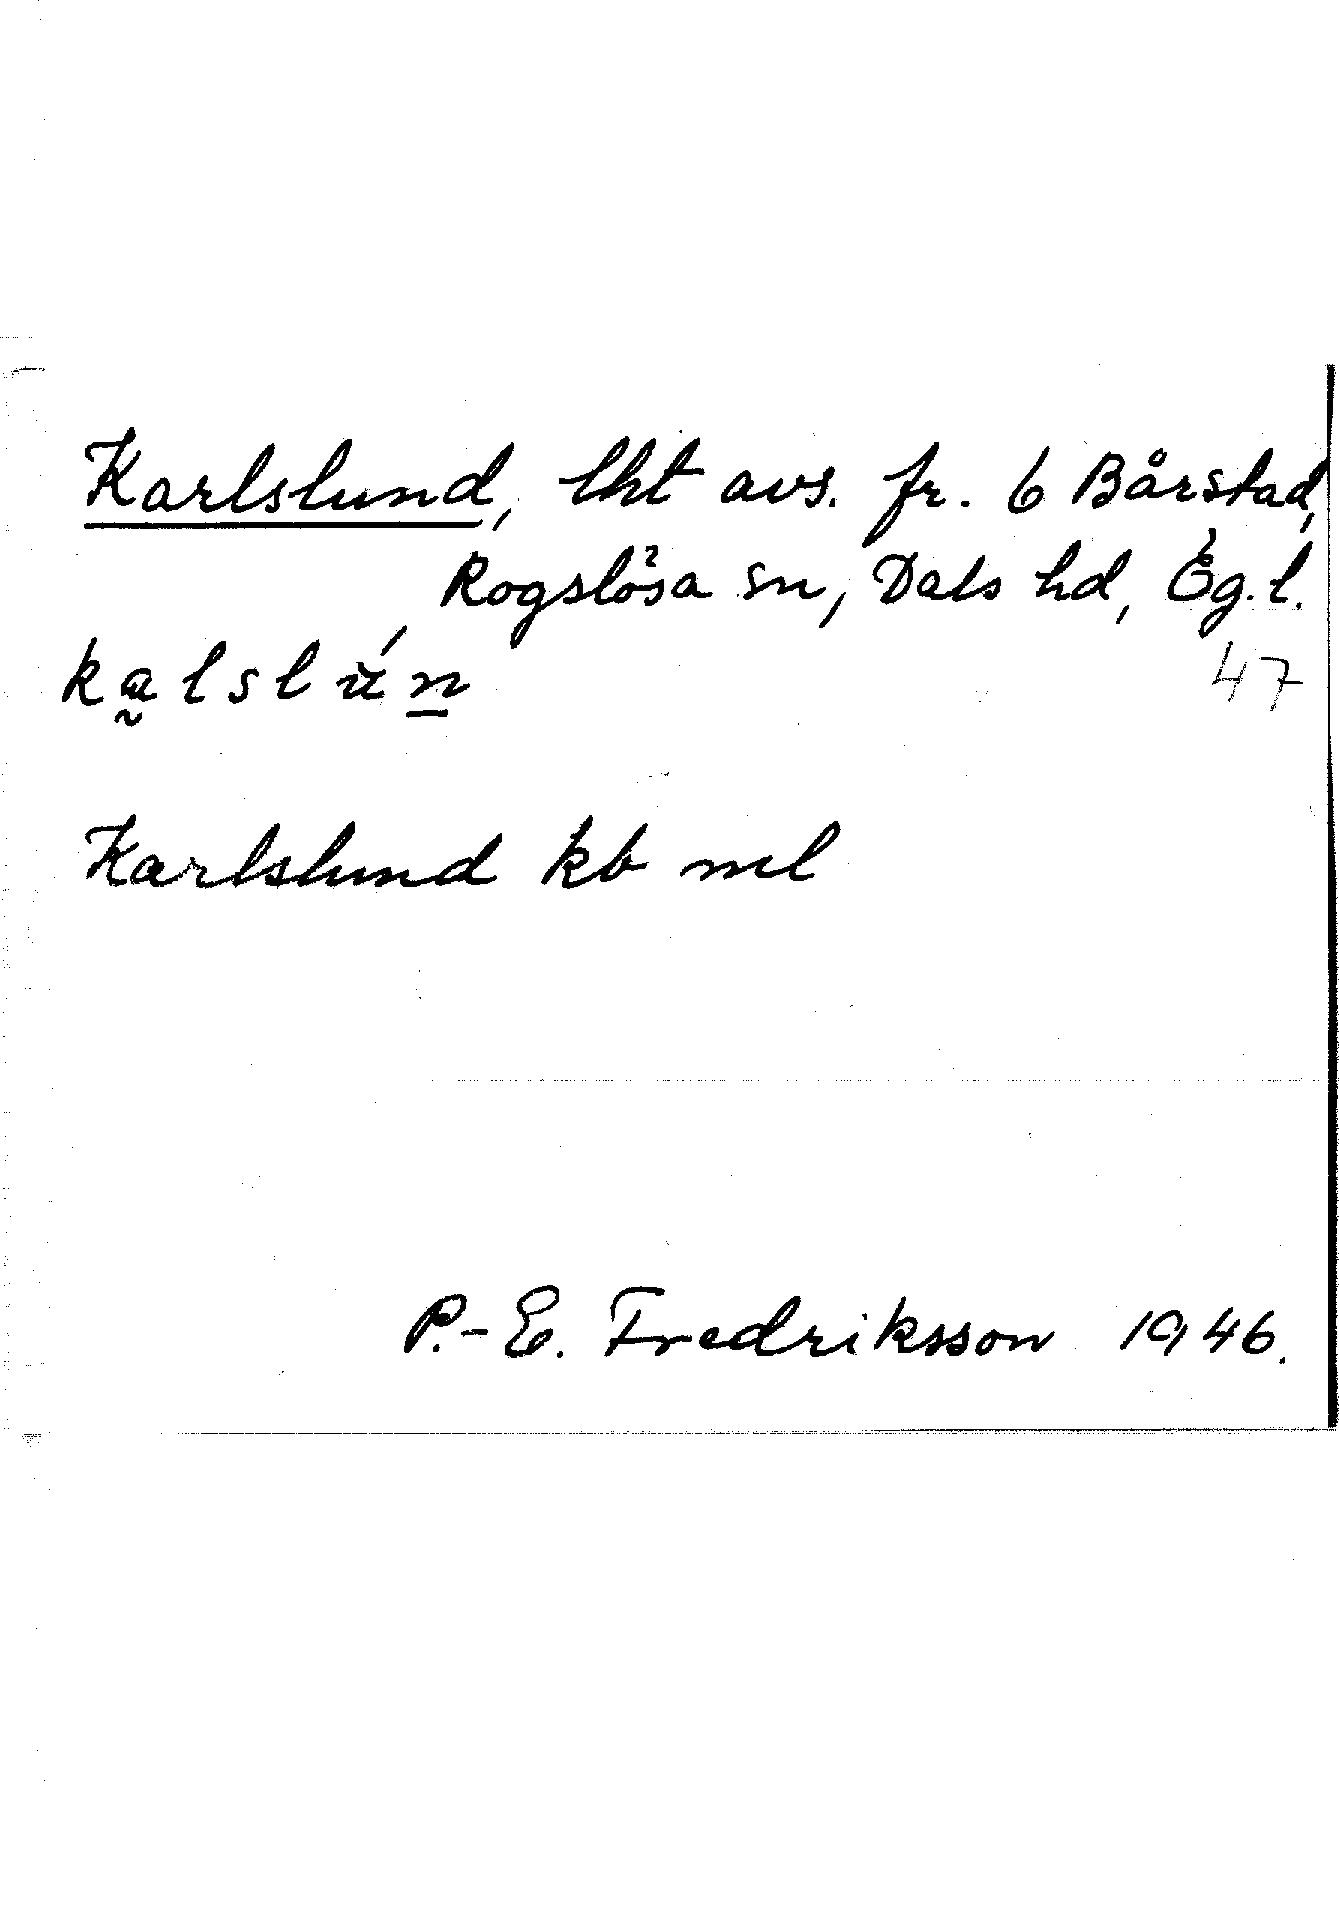 Karlslund, lht avs. fr. 6 Bårstad,
Rogslösa sn, Dals hd, Ög.l.
ka̰lslún̲
47
Karlslund kb ml
P.-E. Fredriksson 1946.